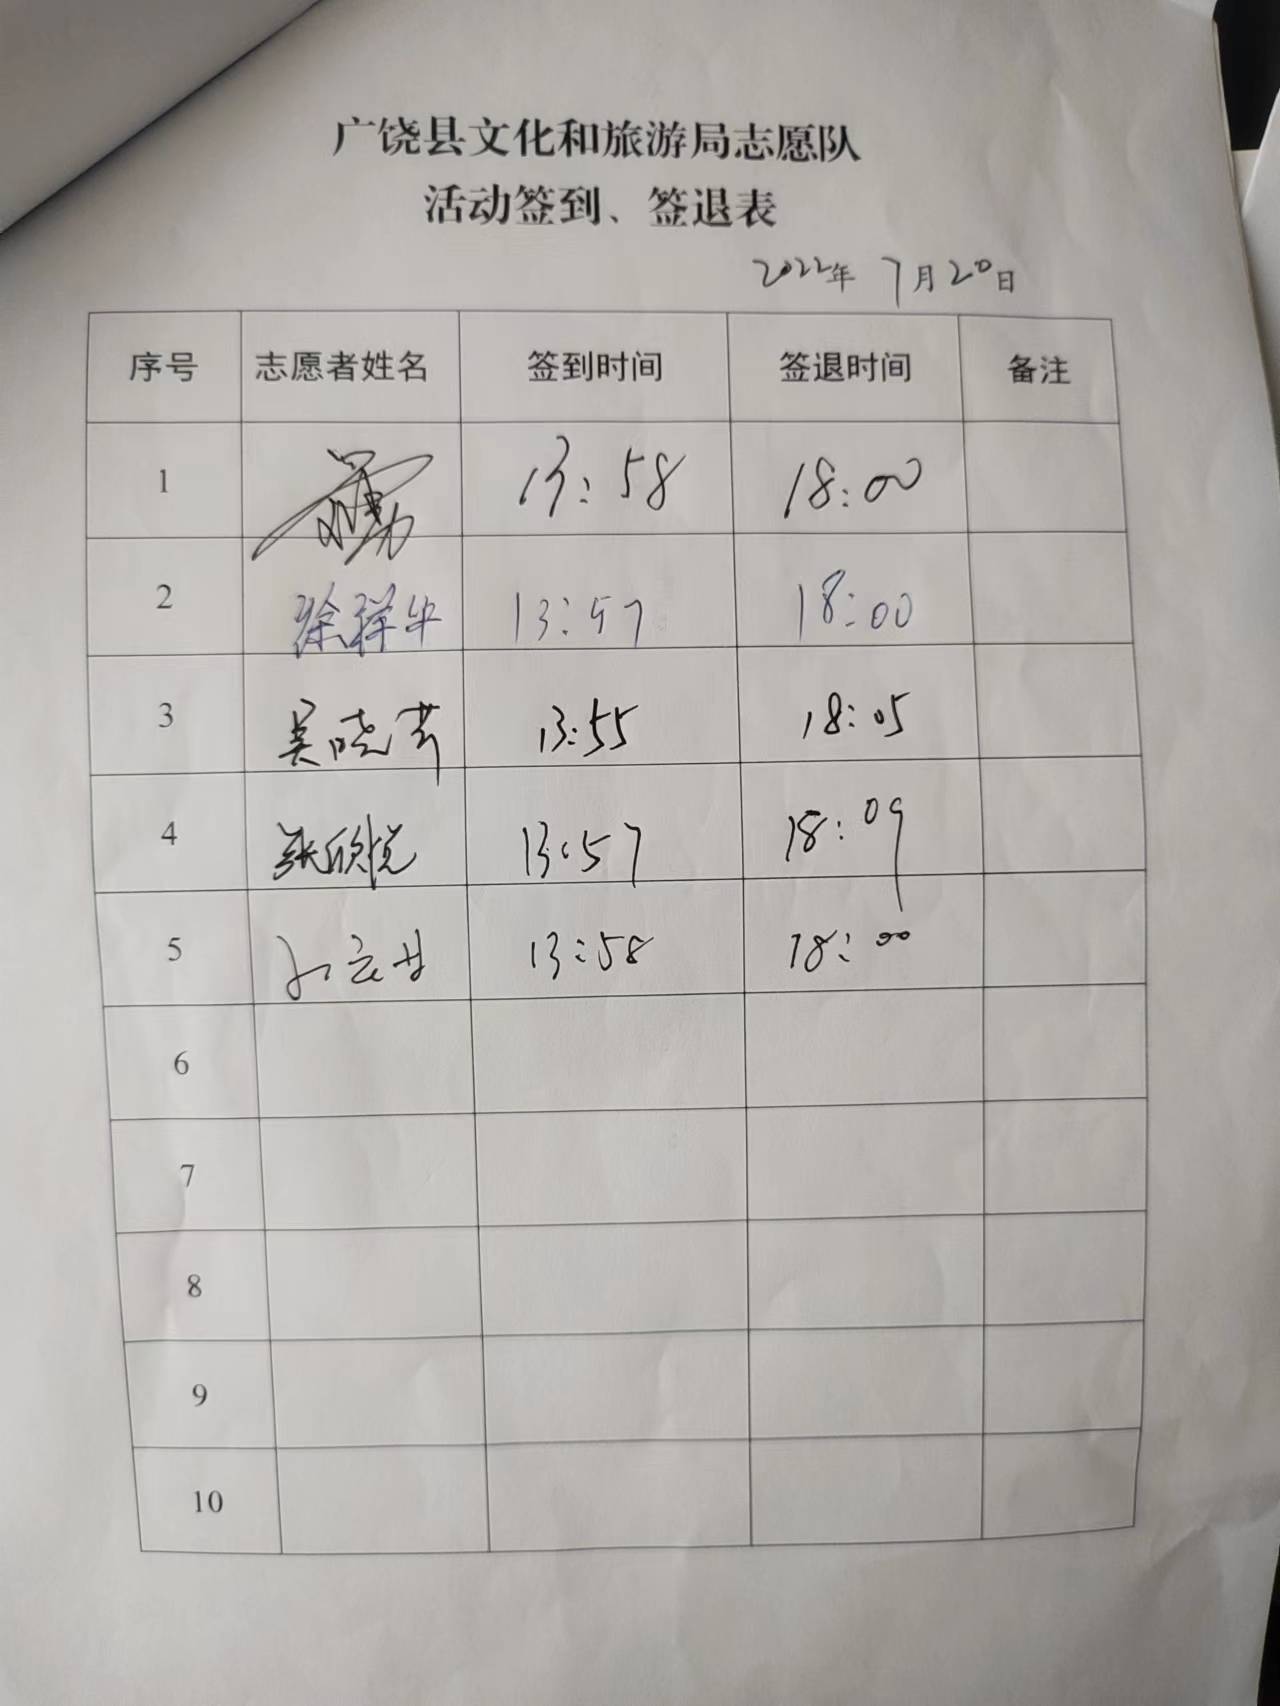 广饶县文化和旅游局志愿队
活动签到、签退表
2022年 7月20日
序号 志愿者姓名 签到时间 签退时间 备注
1 13:58 18:00
2 徐祥华 13:57 18:00
3 吴晓芳 13:55 18:05
4 张欣悦 13:57 18:09
5 13:58 18:00
6
7
8
9
10